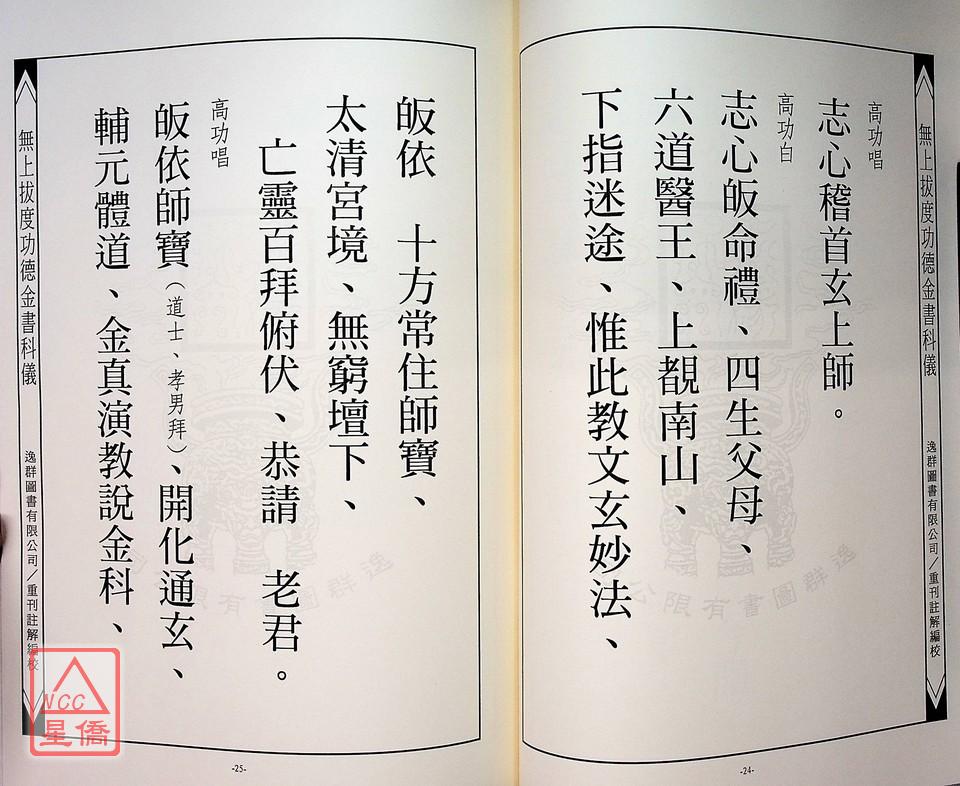 無上拔度功德金書科儀
逸群圖書有限公司／重刊註解編校
高功唱
志心稽首玄上師。
高功白
志心皈命禮、四生父母、
六道醫王、上覩南山、
下指迷途、惟此教文玄妙法、
-24-
皈依　十方常住師寶、
太清宮境、無窮壇下、
亡靈百拜俯伏、恭請　老君。
高功唱
皈依師寶（道士、孝男拜）、開化通玄、
輔元體道、金真演教說金科、
無上拔度功德金書科儀
逸群圖書有限公司／重刊註解編校
-25-
NCC
星僑
逸群圖書有限公